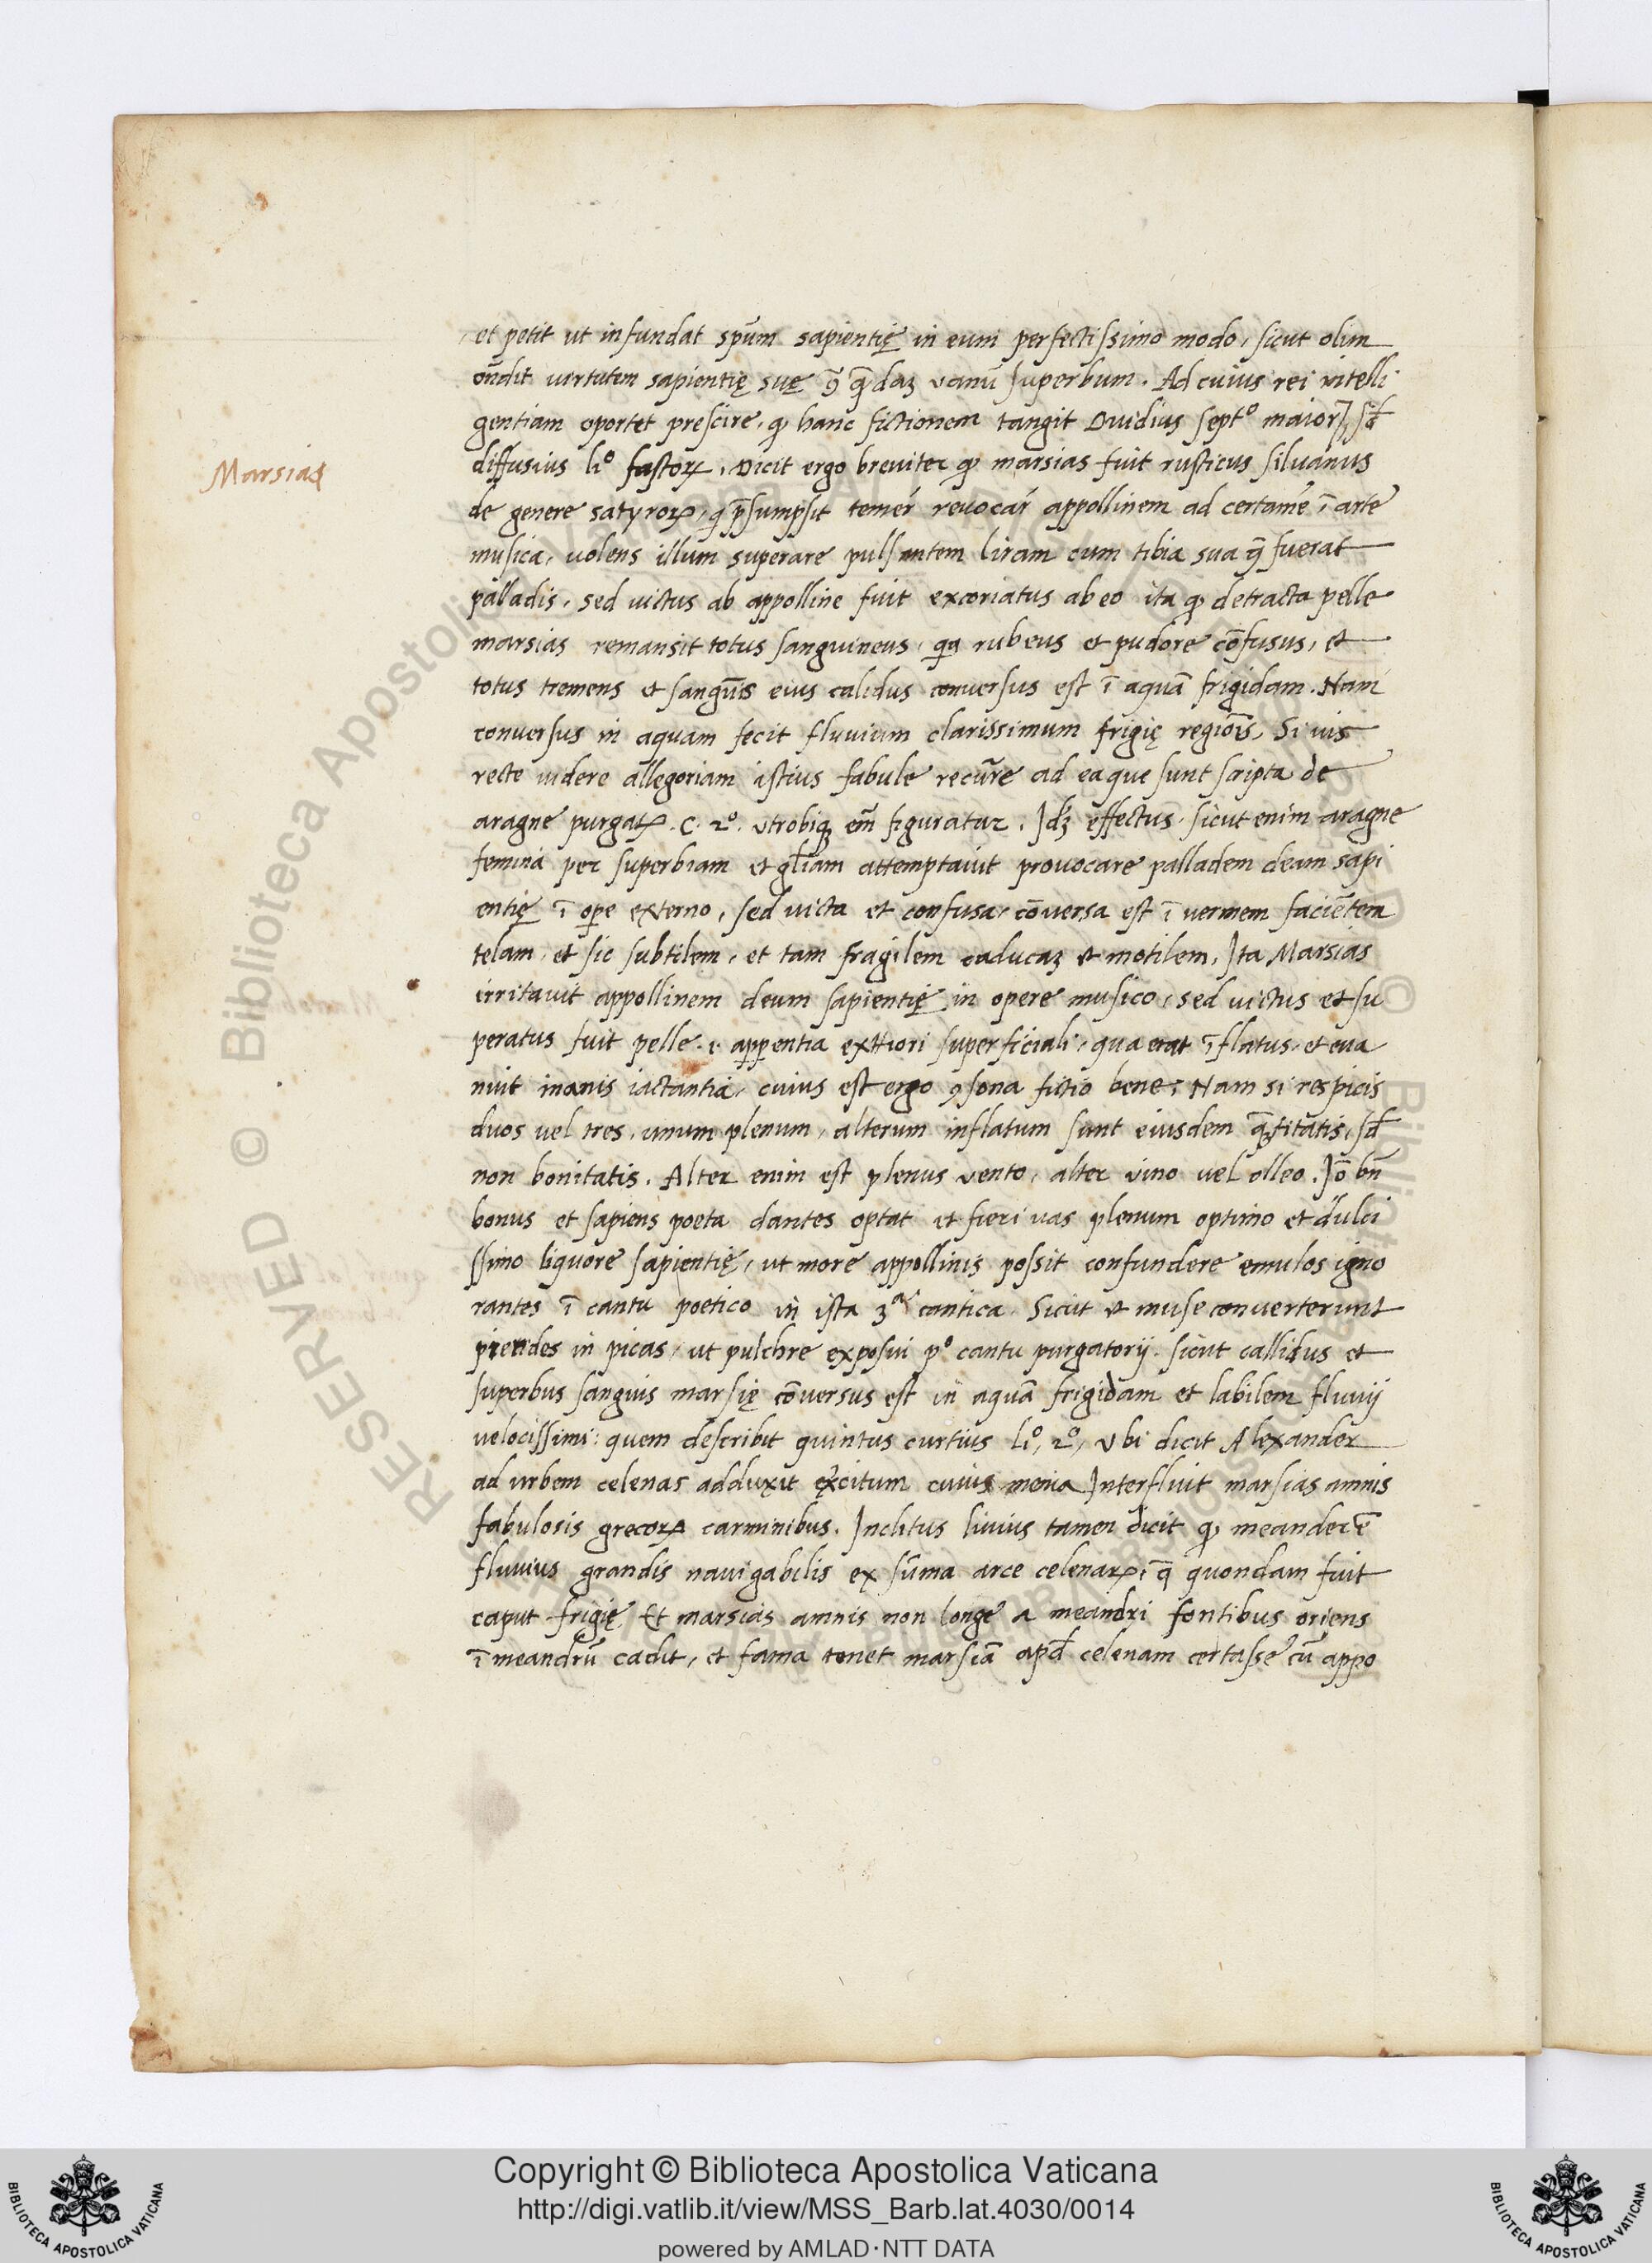 et petit ut infundat spūm sapientię in eum perfectissimo modo, sicut olim
oñdit virtutem sapientię suę ꝯ̄ q̄ndaz vanū superbum. Ad cuius rei intelli
gentiam oportet prescire, ꝙ hanc fictionem tangit Ovidius septᵒ maioꝝ, sꝫ
Marsias
diffusius liᵒ fastoꝝ. Dicit ergo breviter ꝙ marsias fuit rusticus silvanus
de genere satyroꝝ, q p̄sumpsit temer̄ revocar̄ appollinem ad certamē ī arte
musica, volens illum superare pulsantem liram cum tibia sua q̄ fuerat
palladis, sed victus ab appolline fuit excoriatus ab eo ita ꝙ detracta pelle
marsias remansit totus sanguineus, qa rubeus et pudore cōfusus, et
totus tremens et sangūis eius calidus conversus est ī aquā frigidam. Nam
conversus in aquam fecit fluvium clarissimum frigię regiōis, Si vis
recte videre allegoriam istius fabule recūre ad ea que sunt scripta de
aragne purgatꝝ. C. 2ᵒ. utrobiqꝫ em̄ figuratur. Idꝫ effectus. sicut enim aragne
femina per superbiam et gl̄iam attemptavit provocare palladem deam sapi
entię ī ope externo, sed victa et confusa, cōversa est ī vermem faciētem
telam, et sic subtilem, et tam fragilem caducaz et motilem, Ita Marsias
irritavit appollinem deum sapientię in opere musico, sed victus et su
peratus fuit pelle .i. apparentia exttiori superficiali, qua erat īflatus, et eva
nuit inanis iactantia, cuius est ergo ꝯsona fictio bene, Nam si respicis
duos vel tres, unum plenum, alterum inflatum sunt eiusdem q̄ntitatis, sꝫ
non bonitatis. Alter enim est plenus vento, alter vino vel olleo. Iō bn̄
bonus et sapiens poeta dantes optat et fieri vas plenum optimo et dulci
ssimo liquore sapientię, ut more appollinis possit confundere emulos igno
rantes ī cantu poetico in ista 3ᵃ cantica. Sicut et muse converterunt
pierides in picas, ut pulchre exposui pᵒ cantu purgatorij. sicut callidus et
superbus sanguis marsię cōversus est in aquā frigidam et labilem fluvij
velocissimi: quem describit quintus curtius liᵒ, 2ᵒ, Ubi dicit Alexander
ad urbem celenas adduxit exercitum cuius menia Interfluit marsias amnis
fabulosis grecoꝝ carminibus. Inclitus livius tamen dicit ꝙ meander ē
fluvius grandis navigabilis ex sūma arce celenaꝝ, q̄ quondam fuit
caput frigię Et marsias amnis non longe a meandri fontibus oriens
ī meandrū cadit, et fama tenet marsiā apd̄ celenam certasse cū appo
RESERVED © Biblioteca Apostolica Vaticana
Copyright © Biblioteca Apostolica Vaticana
http://digi.vatlib.it/view/MSS_Barb.lat.4030/0014
powered by AMLAD·NTT DATA
BIBLIOTECA APOSTOLICA VATICANA
BIBLIOTECA APOSTOLICA VATICANA